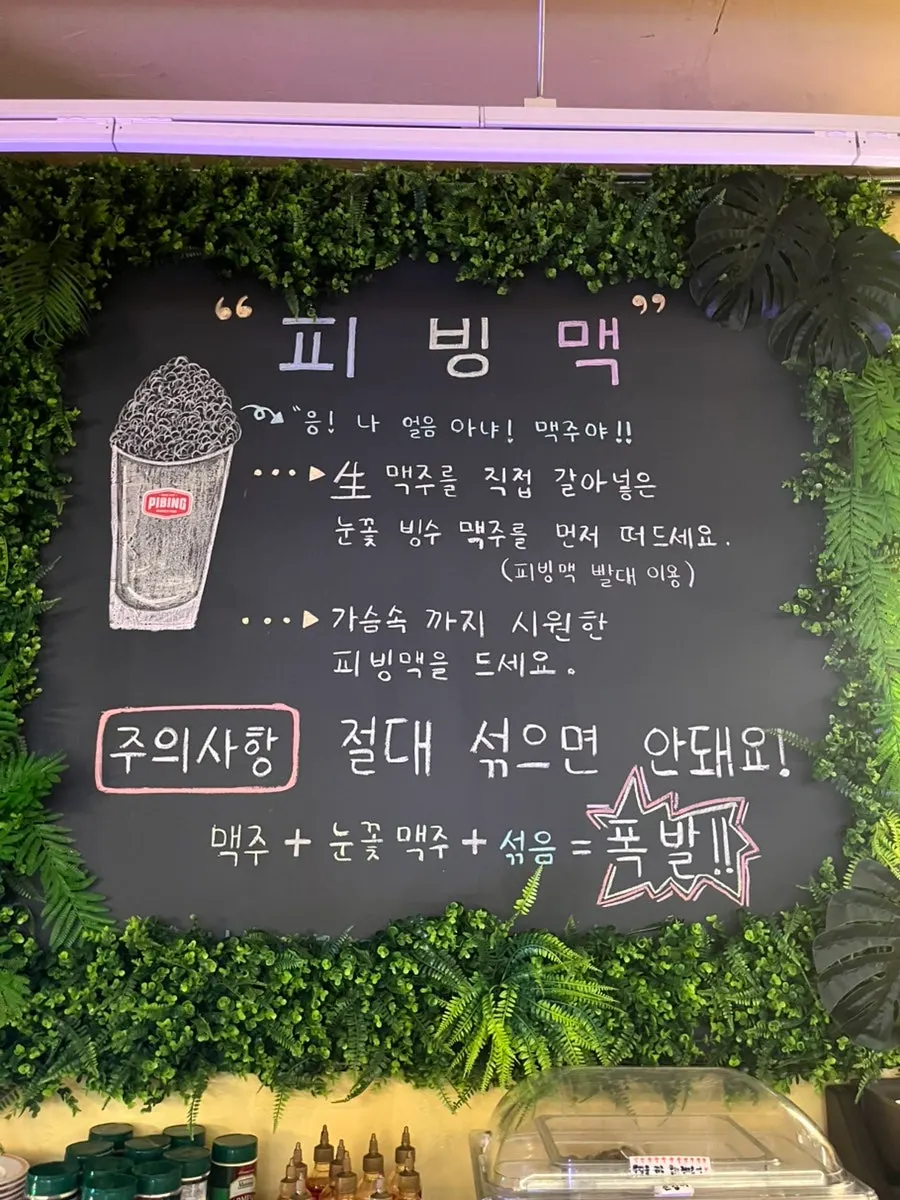 “피빙맥”
“응! 나 얼음 아냐! 맥주야!!
生 맥주를 직접 갈아넣은
눈꽃 빙수 맥주를 먼저 떠드세요.
(피빙맥 빨대 이용)
PIBING
가슴속 까지 시원한
피빙맥을 드세요.
주의사항 절대 섞으면 안돼요!
맥주 + 눈꽃 맥주 + 섞음 = 폭발!!